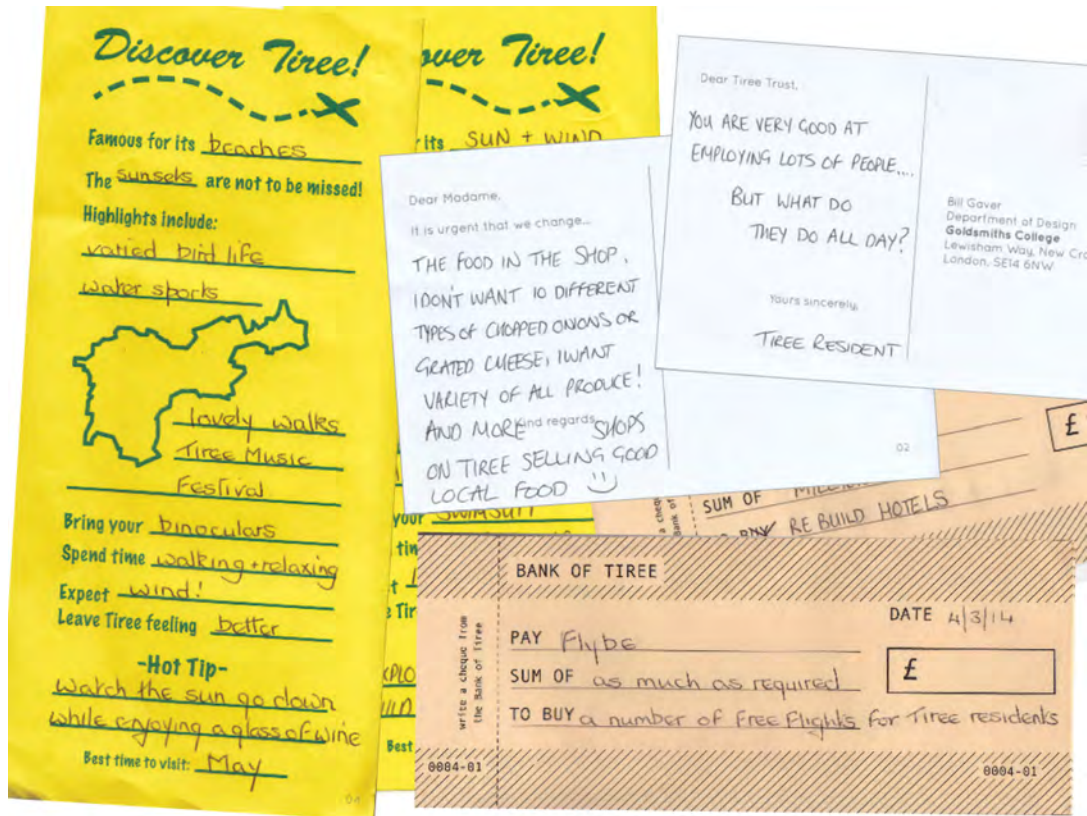 Discover Tiree!
Famous for its beaches
The sunsets are not to be missed!
Highlights include:
varied bird life
water sports
lovely walks
Tiree Music
Festival
Bring your binoculars
Spend time walking + relaxing
Expect wind!
Leave Tiree feeling better
-Hot Tip-
watch the sun go down
while enjoying a glass of wine
Best time to visit: May
04
over Tiree!
its SUN + WIND
your SWIMSUIT
tim
t
e Tir
XPLO
Best
Dear Madame,
It is urgent that we change...
THE FOOD IN THE SHOP.
I DON'T WANT 10 DIFFERENT
TYPES OF CHOPPED ONIONS OR
GRATED CHEESE, I WANT
VARIETY OF ALL PRODUCE!
AND MORE ind regards SHOPS
ON TIREE SELLING GOOD
LOCAL FOOD
02
Dear Tiree Trust,
YOU ARE VERY GOOD AT
EMPLOYING LOTS OF PEOPLE....
BUT WHAT DO
THEY DO ALL DAY?
Yours sincerely,
TIREE RESIDENT
Bill Gaver
Department of Design
Goldsmiths College
Lewisham Way, New Cro
London, SE14 6NW
£
SUM OF
RE BUILD HOTELS
BANK OF TIREE
write a cheque from
the Bank of Tiree
DATE 4/3/14
PAY Flybe
£
SUM OF as much as required
TO BUY a number of free flights for Tiree residents
0004-01
0004-01